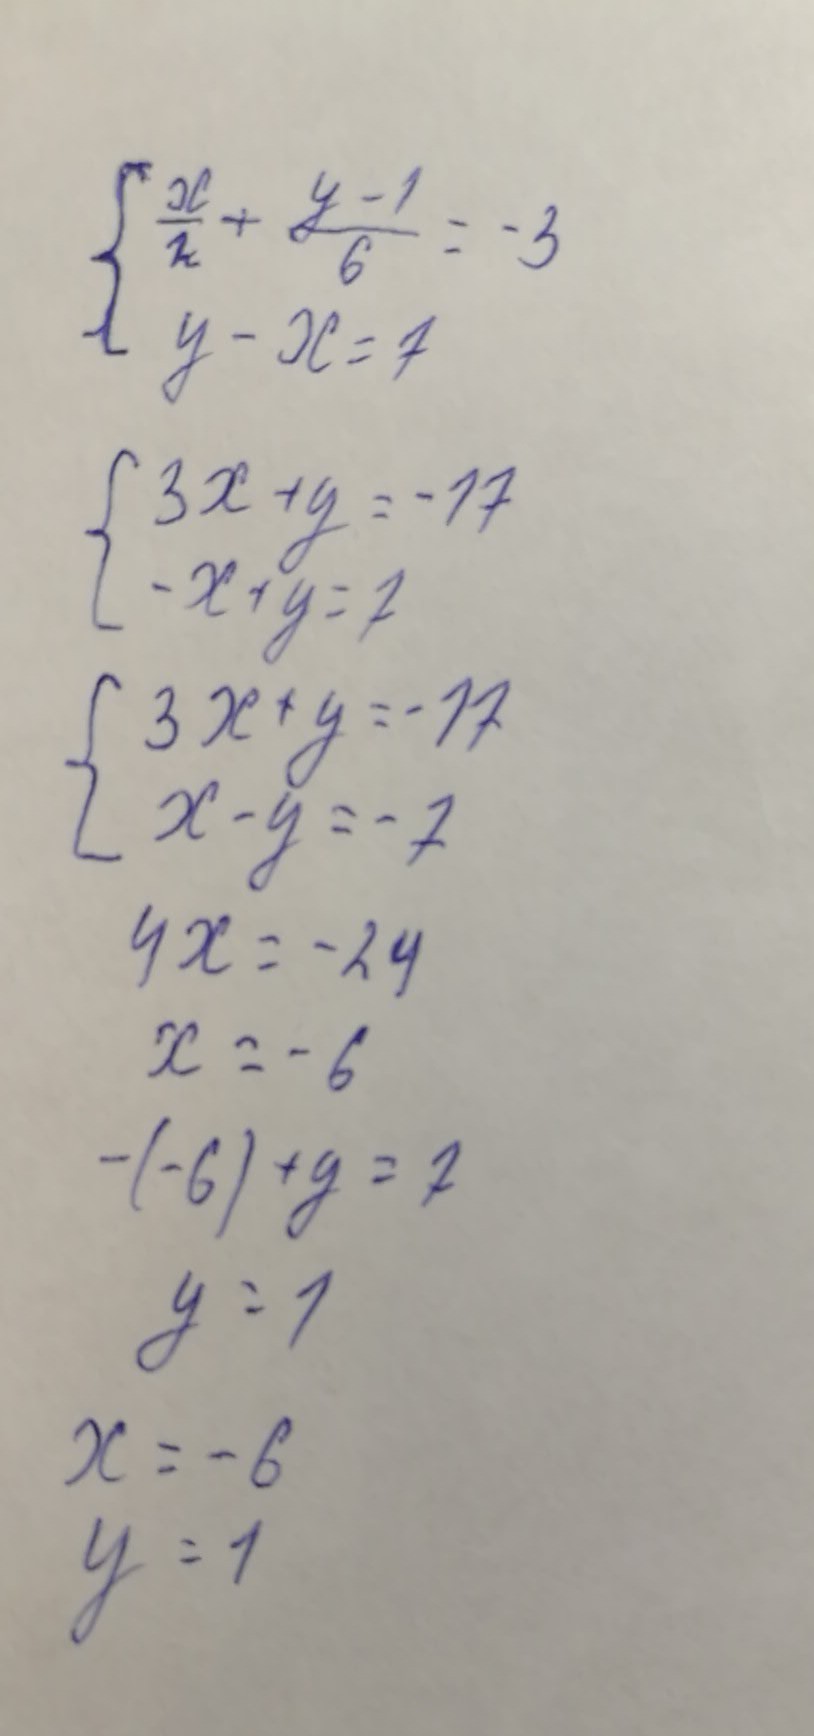 { x/2 + (y-1)/6 = -3
y - x = 7
{ 3x + y = -17
-x + y = 7
{ 3x + y = -17
x - y = -7
4x = -24
x = -6
-(-6) + y = 7
y = 1
x = -6
y = 1